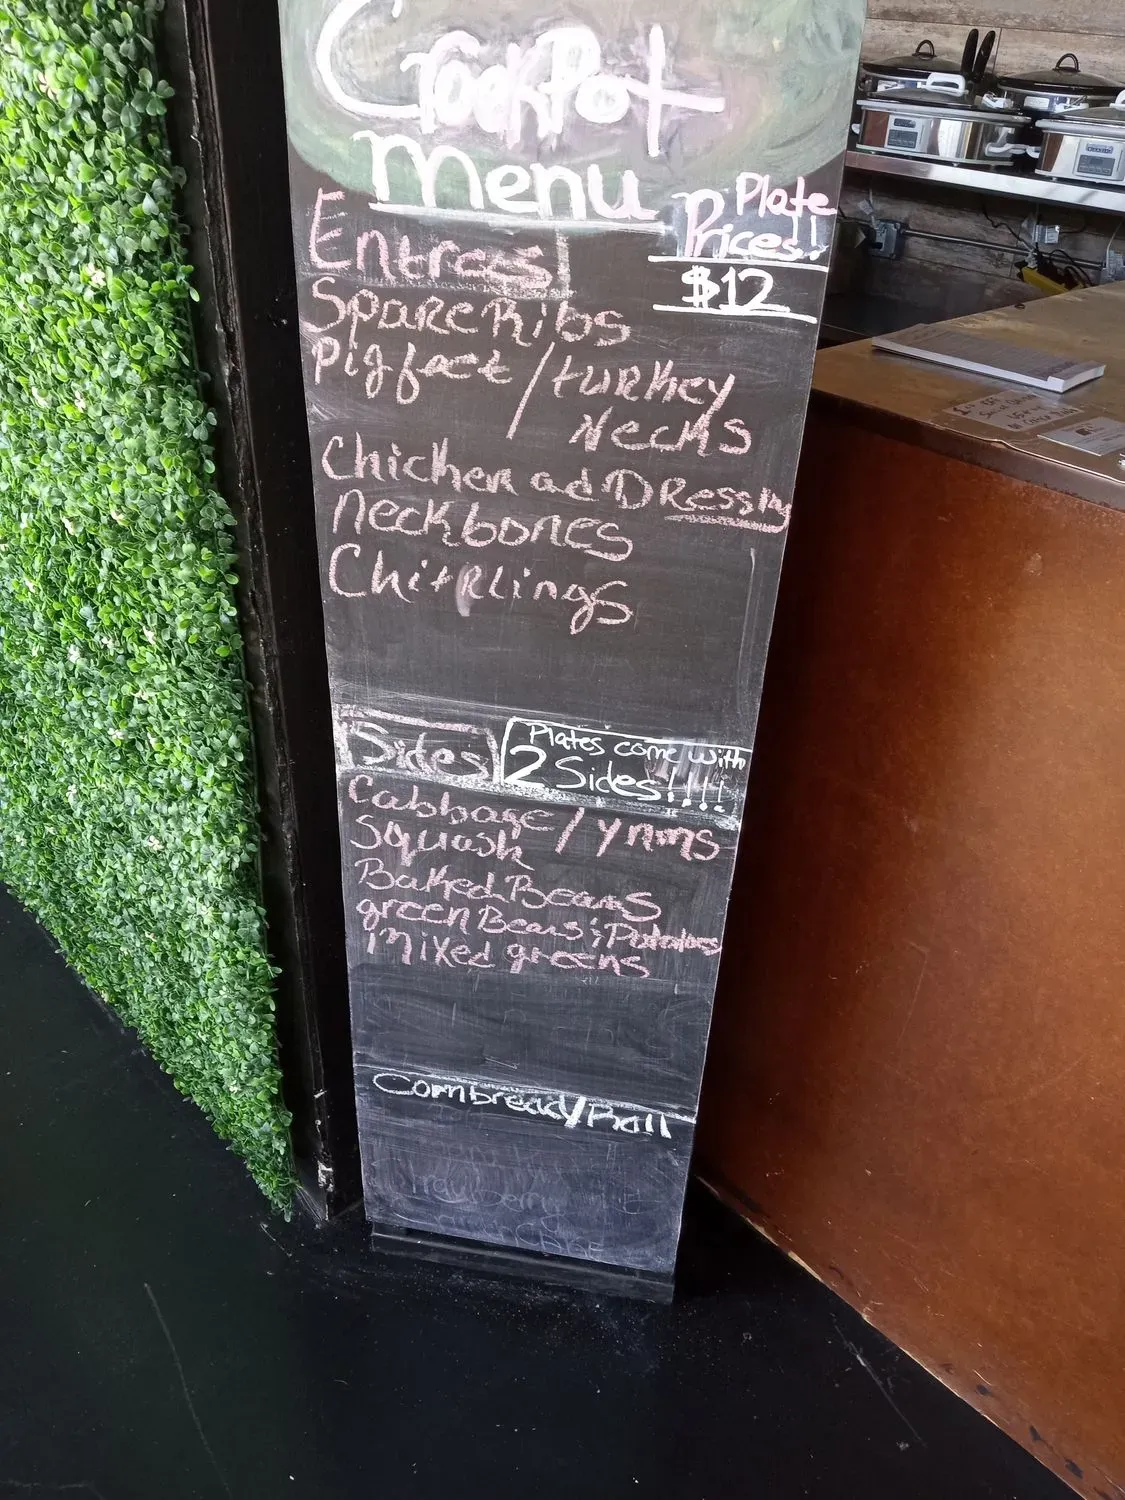 CrockPot
Menu
Plate
Prices!
$12
Entrees
Spare Ribs
Pig feet / turkey
Necks
Chicken ad Dressing
Neckbones
Chitrlings
Sides
Plates come with
2 Sides!!!!
Cabbage / Yams
Squash
Baked Beans
green Beans; Potatoes
mixed greens
Cornbread/Roll